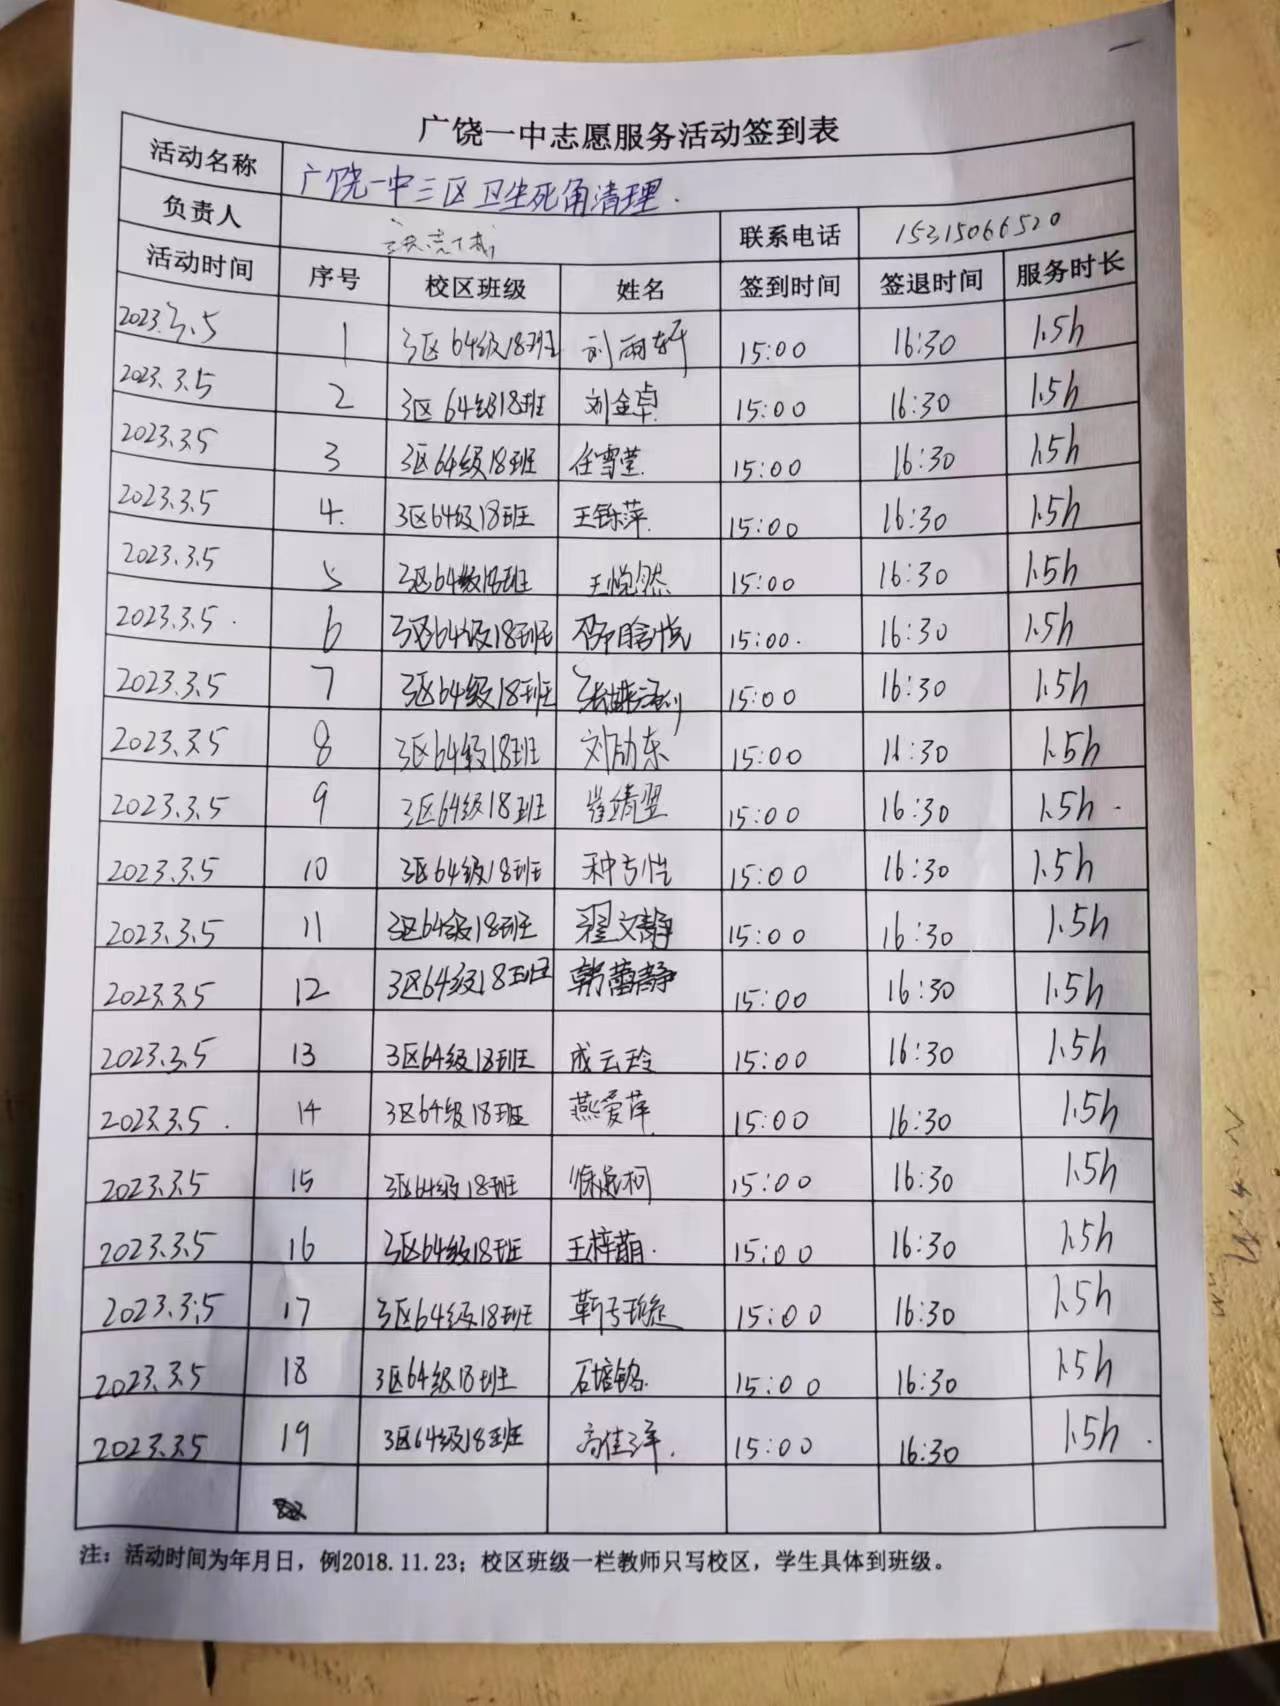 广饶一中志愿服务活动签到表
活动名称 广饶一中三区卫生死角清理.
负责人 联系电话 15315066520
活动时间 序号 校区班级 姓名 签到时间 签退时间 服务时长
2023.3.5 1 3区64级18班 刘雨轩 15:00 16:30 1.5h
2023.3.5 2 3区64级18班 刘金卓 15:00 16:30 1.5h
2023.3.5 3 3区64级18班 任雪莹 15:00 16:30 1.5h
2023.3.5 4. 3区64级18班 王铄萍 15:00 16:30 1.5h
2023.3.5 5 3区64级18班 王悦然 15:00 16:30 1.5h
2023.3.5. 6 3区64级18班 15:00. 16:30 1.5h
2023.3.5 7 3区64级18班 15:00 16:30 1.5h
2023.3.5 8 3区64级18班 刘励东 15:00 16:30 1.5h
2023.3.5 9 3区64级18班 崔靖翌 15:00 16:30 1.5h.
2023.3.5 10 3区64级18班 15:00 16:30 1.5h
2023.3.5 11 3区64级18班 翟文静 15:00 16:30 1.5h
2023.3.5 12 3区64级18班 韩蕾静 15:00 16:30 1.5h
2023.3.5 13 3区64级18班 成云玲 15:00 16:30 1.5h
2023.3.5. 14 3区64级18班 燕爱萍 15:00 16:30 1.5h
2023.3.5 15 3区64级18班 15:00 16:30 1.5h
2023.3.5 16 3区64级18班 王梓萌. 15:00 16:30 1.5h
2023.3.5 17 3区64级18班 15:00 16:30 1.5h
2023.3.5 18 3区64级18班 石培铭 15:00 16:30 1.5h
2023.3.5 19 3区64级18班 高佳洋. 15:00 16:30 1.5h.
注：活动时间为年月日，例2018.11.23；校区班级一栏教师只写校区，学生具体到班级。